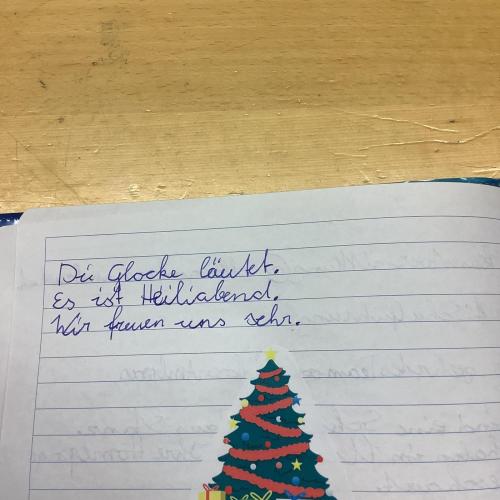 Die Glocke läutet.
Es ist Heiliabend.
Wir freuen uns sehr.